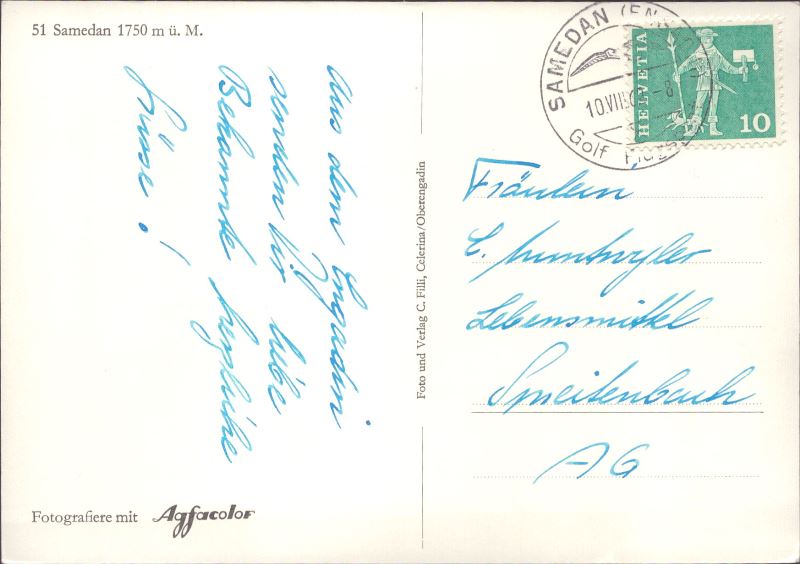 51 Samedan 1750 m ü. M.
Aus dem Engadin
senden wir liebe
Bekannte herzliche
Grüsse!
Fotografiere mit Agfacolor
Foto und Verlag C. Filli, Celerina/Oberengadin
SAMEDAN
10.VII
-8
Golf
HELVETIA
10
Fräulein
Lebensmittel
Spreitenbach
AG